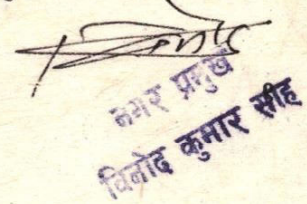 नगर प्रमुख
विनोद कुमार सीह